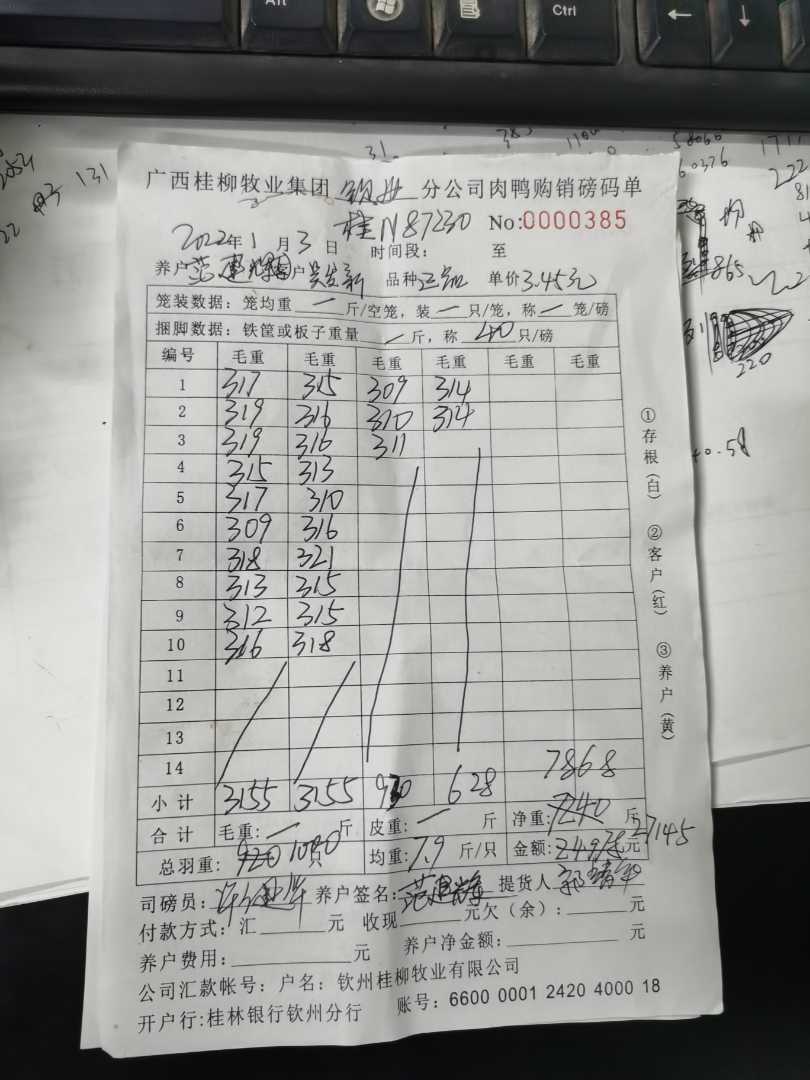 Alt
Ctrl
广西桂柳牧业集团 钦州 分公司肉鸭购销磅码单
桂N87230 No:0000385
2022年1月3日 时间段: 至
养户 客户 吴发新 品种 单价3.45元
笼装数据: 笼均重 一 斤/空笼, 装 一 只/笼, 称 一 笼/磅
捆脚数据: 铁筐或板子重量 一 斤, 称 40 只/磅
编号 毛重 毛重 毛重 毛重 毛重 毛重
1 317 315 309 314
2 319 316 310 314
3 319 316 311
4 315 313
5 317 310
6 309 316
7 318 321
8 313 315
9 312 315
10 316 318
11
12
13
14 7868
小计 3155 3155 930 628
合计 毛重: 一 斤 皮重: 一 斤 净重: 7240 斤
27145
总羽重: 920 1000 只 均重: 7.9 斤/只 金额: 元
司磅员: 养户签名: 提货人
付款方式: 汇 元 收现 元欠(余): 元
养户费用: 元 养户净金额: 元
公司汇款帐号: 户名: 钦州桂柳牧业有限公司
开户行:桂林银行钦州分行 账号: 6600 0001 2420 4000 18
①存根(白) ②客户(红) ③养户(黄)
131
58060
60376
222
865
220